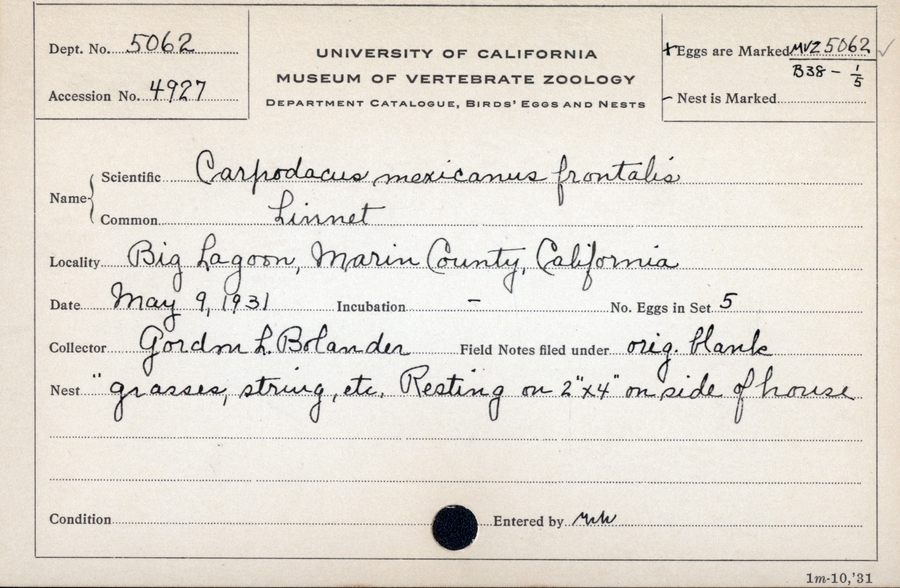 Dept. No. 5062
Accession No. 4927
UNIVERSITY OF CALIFORNIA
MUSEUM OF VERTEBRATE ZOOLOGY
DEPARTMENT CATALOGUE, BIRDS' EGGS AND NESTS
+ Eggs are Marked MVZ 5062 ✓
B38 - 1/5
- Nest is Marked
Name { Scientific Carpodacus mexicanus frontalis
Common Linnet
Locality Big Lagoon, Marin County, California
Date May 9, 1931 Incubation - No. Eggs in Set 5
Collector Gordon L. Bolander Field Notes filed under orig. blank
Nest "grasses, string, etc. Resting on 2"x4" on side of house
Condition Entered by
1m-10,'31